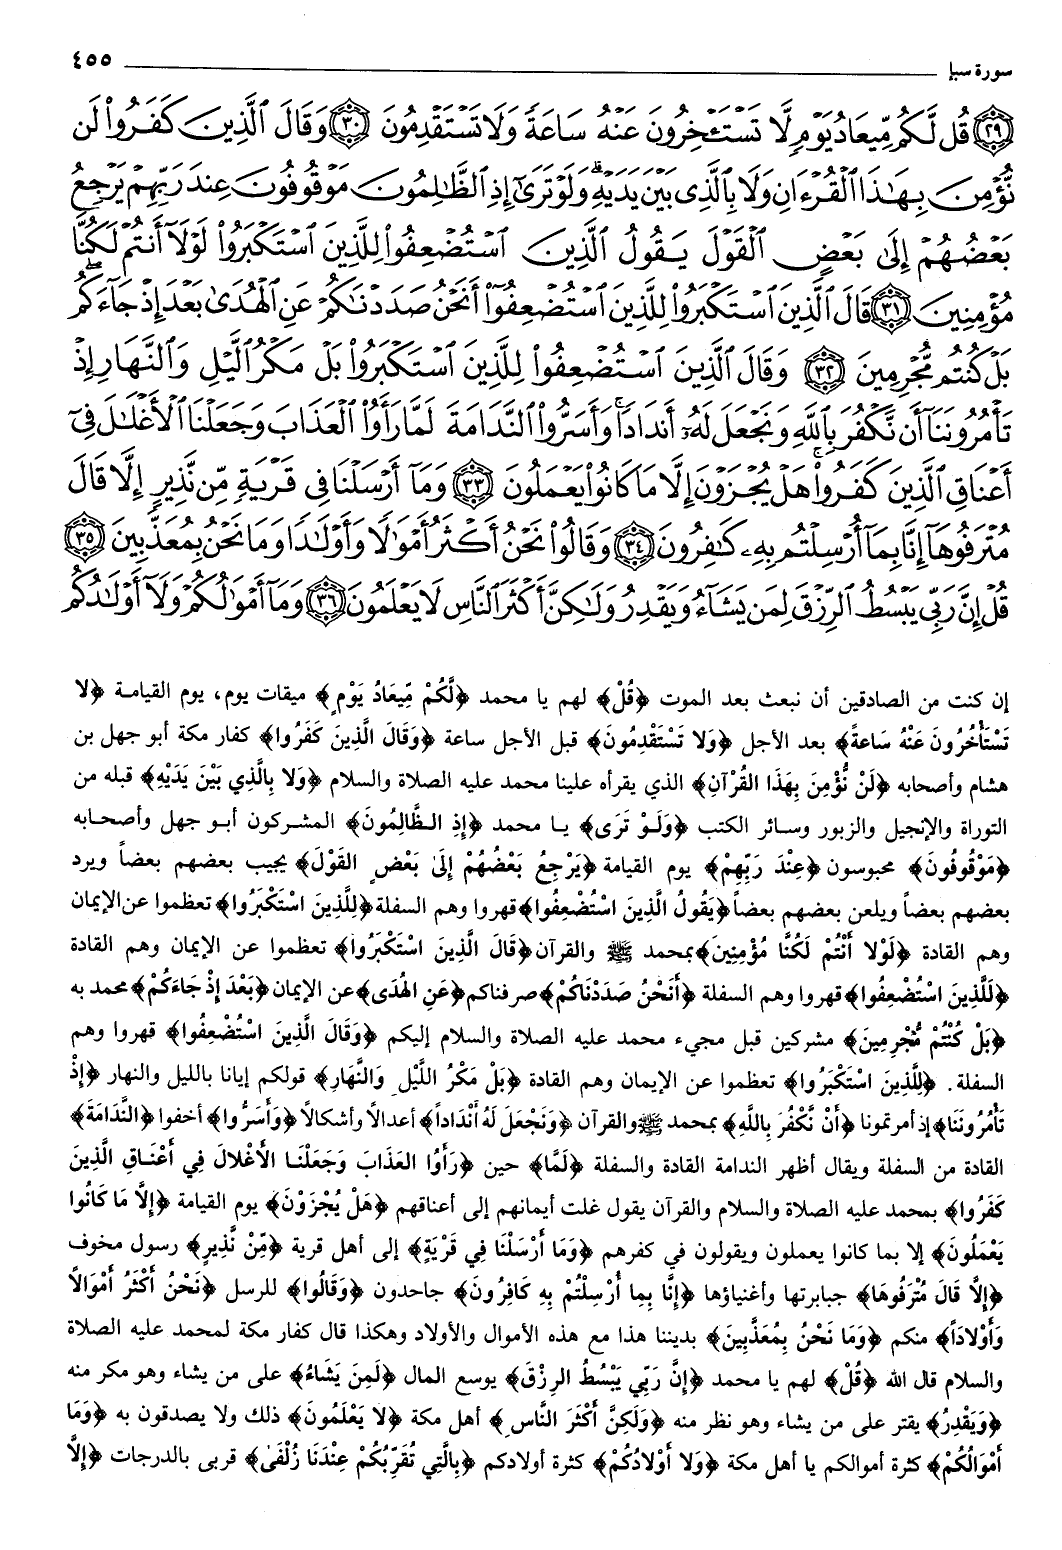 سورة سبإ ٤٥٥
٢٩ قُل لَّكُم مِّيعَادُ يَوْمٍ لَّا تَسْتَـْٔخِرُونَ عَنْهُ سَاعَةً وَلَا تَسْتَقْدِمُونَ ٣٠ وَقَالَ ٱلَّذِينَ كَفَرُوا۟ لَن
نُّؤْمِنَ بِهَـٰذَا ٱلْقُرْءَانِ وَلَا بِٱلَّذِى بَيْنَ يَدَيْهِ ۗ وَلَوْ تَرَىٰٓ إِذِ ٱلظَّـٰلِمُونَ مَوْقُوفُونَ عِندَ رَبِّهِمْ يَرْجِعُ
بَعْضُهُمْ إِلَىٰ بَعْضٍ ٱلْقَوْلَ يَقُولُ ٱلَّذِينَ ٱسْتُضْعِفُوا۟ لِلَّذِينَ ٱسْتَكْبَرُوا۟ لَوْلَآ أَنتُمْ لَكُنَّا
مُؤْمِنِينَ ٣١ قَالَ ٱلَّذِينَ ٱسْتَكْبَرُوا۟ لِلَّذِينَ ٱسْتُضْعِفُوٓا۟ أَنَحْنُ صَدَدْنَـٰكُمْ عَنِ ٱلْهُدَىٰ بَعْدَ إِذْ جَآءَكُم ۖ
بَلْ كُنتُم مُّجْرِمِينَ ٣٢ وَقَالَ ٱلَّذِينَ ٱسْتُضْعِفُوا۟ لِلَّذِينَ ٱسْتَكْبَرُوا۟ بَلْ مَكْرُ ٱلَّيْلِ وَٱلنَّهَارِ إِذْ
تَأْمُرُونَنَآ أَن نَّكْفُرَ بِٱللَّهِ وَنَجْعَلَ لَهُۥٓ أَندَادًا ۚ وَأَسَرُّوا۟ ٱلنَّدَامَةَ لَمَّا رَأَوُا۟ ٱلْعَذَابَ وَجَعَلْنَا ٱلْأَغْلَـٰلَ فِىٓ
أَعْنَاقِ ٱلَّذِينَ كَفَرُوا۟ ۚ هَلْ يُجْزَوْنَ إِلَّا مَا كَانُوا۟ يَعْمَلُونَ ٣٣ وَمَآ أَرْسَلْنَا فِى قَرْيَةٍ مِّن نَّذِيرٍ إِلَّا قَالَ
مُتْرَفُوهَآ إِنَّا بِمَآ أُرْسِلْتُم بِهِۦ كَـٰفِرُونَ ٣٤ وَقَالُوا۟ نَحْنُ أَكْثَرُ أَمْوَٰلًا وَأَوْلَـٰدًا وَمَا نَحْنُ بِمُعَذَّبِينَ ٣٥
قُلْ إِنَّ رَبِّى يَبْسُطُ ٱلرِّزْقَ لِمَن يَشَآءُ وَيَقْدِرُ وَلَـٰكِنَّ أَكْثَرَ ٱلنَّاسِ لَا يَعْلَمُونَ ٣٦ وَمَآ أَمْوَٰلُكُمْ وَلَآ أَوْلَـٰدُكُم
إن كنت من الصادقين أن نبعث بعد الموت ﴿قُلْ﴾ لهم يا محمد ﴿لَّكُمْ مِّيعَادُ يَوْمٍ﴾ ميقات يوم، يوم القيامة ﴿لا
تَسْتَأْخِرُونَ عَنْهُ سَاعَةً﴾ بعد الأجل ﴿وَلا تَسْتَقْدِمُونَ﴾ قبل الأجل ساعة ﴿وَقَالَ الَّذِينَ كَفَرُوا﴾ كفار مكة أبو جهل بن
هشام وأصحابه ﴿لَنْ نُّؤْمِنَ بِهَذَا القُرْآنِ﴾ الذي يقرأه علينا محمد عليه الصلاة والسلام ﴿وَلا بِالَّذِي بَيْنَ يَدَيْهِ﴾ قبله من
التوراة والإنجيل والزبور وسائر الكتب ﴿وَلَوْ تَرَى﴾ يا محمد ﴿إِذِ الظَّالِمُونَ﴾ المشركون أبو جهل وأصحابه
﴿مَوْقُوفُونَ﴾ محبوسون ﴿عِنْدَ رَبِّهِمْ﴾ يوم القيامة ﴿يَرْجِعُ بَعْضُهُمْ إِلَىٰ بَعْضٍ القَوْلَ﴾ يجيب بعضهم بعضاً ويرد
بعضهم بعضاً ويلعن بعضهم بعضاً ﴿يَقُولُ الَّذِينَ اسْتُضْعِفُوا﴾ قهروا وهم السفلة ﴿لِلَّذِينَ اسْتَكْبَرُوا﴾ تعظموا عن الإيمان
وهم القادة ﴿لَوْلا أَنْتُمْ لَكُنَّا مُؤْمِنِينَ﴾ بمحمد ﷺ والقرآن ﴿قَالَ الَّذِينَ اسْتَكْبَرُوا﴾ تعظموا عن الإيمان وهم القادة
﴿لِلَّذِينَ اسْتُضْعِفُوا﴾ قهروا وهم السفلة ﴿أَنَحْنُ صَدَدْنَاكُمْ﴾ صرفناكم ﴿عَنِ الهُدَى﴾ عن الإيمان ﴿بَعْدَ إِذْ جَاءَكُمْ﴾ محمد به
﴿بَلْ كُنْتُمْ مُّجْرِمِينَ﴾ مشركين قبل مجيء محمد عليه الصلاة والسلام إليكم ﴿وَقَالَ الَّذِينَ اسْتُضْعِفُوا﴾ قهروا وهم
السفلة. ﴿لِلَّذِينَ اسْتَكْبَرُوا﴾ تعظموا عن الإيمان وهم القادة ﴿بَلْ مَكْرُ اللَّيْلِ وَالنَّهَارِ﴾ قولكم إيانا بالليل والنهار ﴿إِذْ
تَأْمُرُونَنَا﴾ إذ أمرتمونا ﴿أَنْ نَّكْفُرَ بِاللَّهِ﴾ بمحمد ﷺ والقرآن ﴿وَنَجْعَلَ لَهُ أَنْدَاداً﴾ أعدالاً وأشكالاً ﴿وَأَسَرُّوا﴾ أخفوا ﴿النَّدَامَةَ﴾
القادة من السفلة ويقال أظهر الندامة القادة والسفلة ﴿لَمَّا﴾ حين ﴿رَأَوُا العَذَابَ وَجَعَلْنَا الأَغْلالَ فِي أَعْنَاقِ الَّذِينَ
كَفَرُوا﴾ بمحمد عليه الصلاة والسلام والقرآن يقول غلت أيمانهم إلى أعناقهم ﴿هَلْ يُجْزَوْنَ﴾ يوم القيامة ﴿إِلَّا مَا كَانُوا
يَعْمَلُونَ﴾ إلا بما كانوا يعملون ويقولون في كفرهم ﴿وَمَا أَرْسَلْنَا فِي قَرْيَةٍ﴾ إلى أهل قرية ﴿مِّنْ نَّذِيرٍ﴾ رسول مخوف
﴿إِلَّا قَالَ مُتْرَفُوهَا﴾ جبابرتها وأغنياؤها ﴿إِنَّا بِمَا أُرْسِلْتُمْ بِهِ كَافِرُونَ﴾ جاحدون ﴿وَقَالُوا﴾ للرسل ﴿نَحْنُ أَكْثَرُ أَمْوَالاً
وَأَوْلاداً﴾ منكم ﴿وَمَا نَحْنُ بِمُعَذَّبِينَ﴾ بديننا هذا مع هذه الأموال والأولاد وهكذا قال كفار مكة لمحمد عليه الصلاة
والسلام قال الله ﴿قُلْ﴾ لهم يا محمد ﴿إِنَّ رَبِّي يَبْسُطُ الرِزْقَ﴾ يوسع المال ﴿لَمِنَ يَشَاءُ﴾ على من يشاء وهو مكر منه
﴿وَيَقْدِرُ﴾ يقتر على من يشاء وهو نظر منه ﴿وَلَكِنَّ أَكْثَرَ النَّاسِ﴾ أهل مكة ﴿لا يَعْلَمُونَ﴾ ذلك ولا يصدقون به ﴿وَمَا
أَمْوَالُكُمْ﴾ كثرة أموالكم يا أهل مكة ﴿وَلا أَوْلادُكُمْ﴾ كثرة أولادكم ﴿بِالَّتِي تُقَرِّبُكُمْ عِنْدَنَا زُلْفَى﴾ قربى بالدرجات ﴿إِلَّا